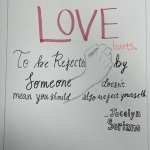 LOVE
hurts.
To be Rejected by
Someone doesn't
mean you should also reject yourself.
- Jocelyn
Soriano